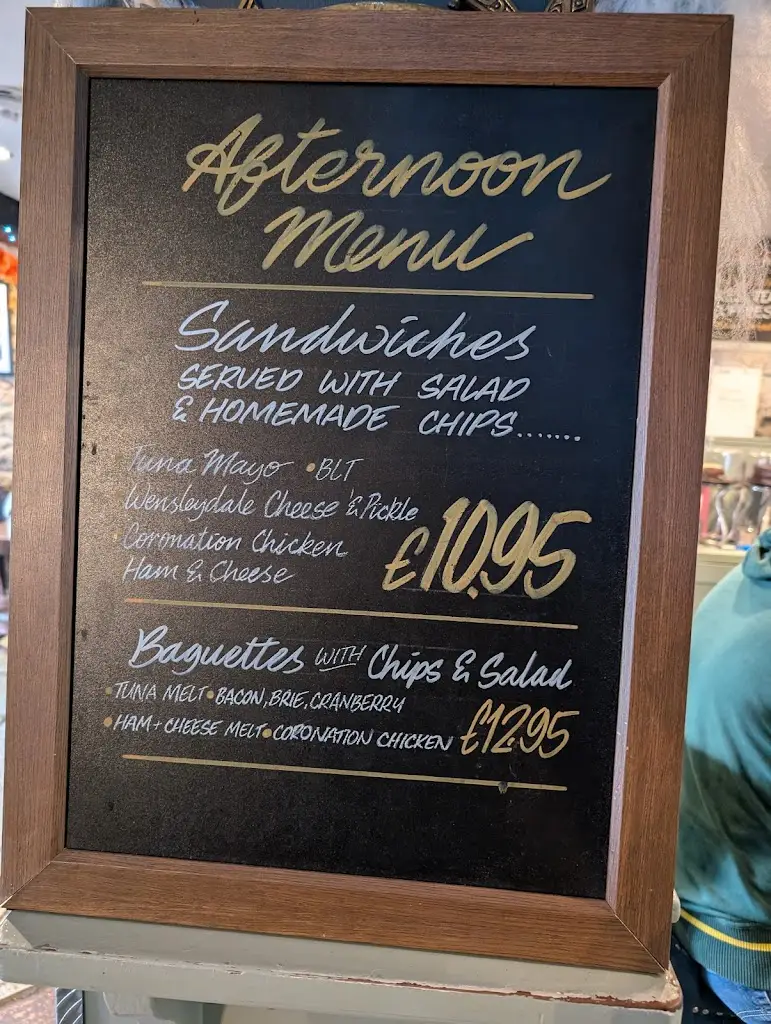 Afternoon
Menu
Sandwiches
SERVED WITH SALAD
& HOMEMADE CHIPS.......
Tuna Mayo • BLT
Wensleydale Cheese & Pickle
• Coronation Chicken
Ham & Cheese
£10.95
Baguettes WITH Chips & Salad
• TUNA MELT • BACON, BRIE, CRANBERRY
• HAM + CHEESE MELT • CORONATION CHICKEN £12.95